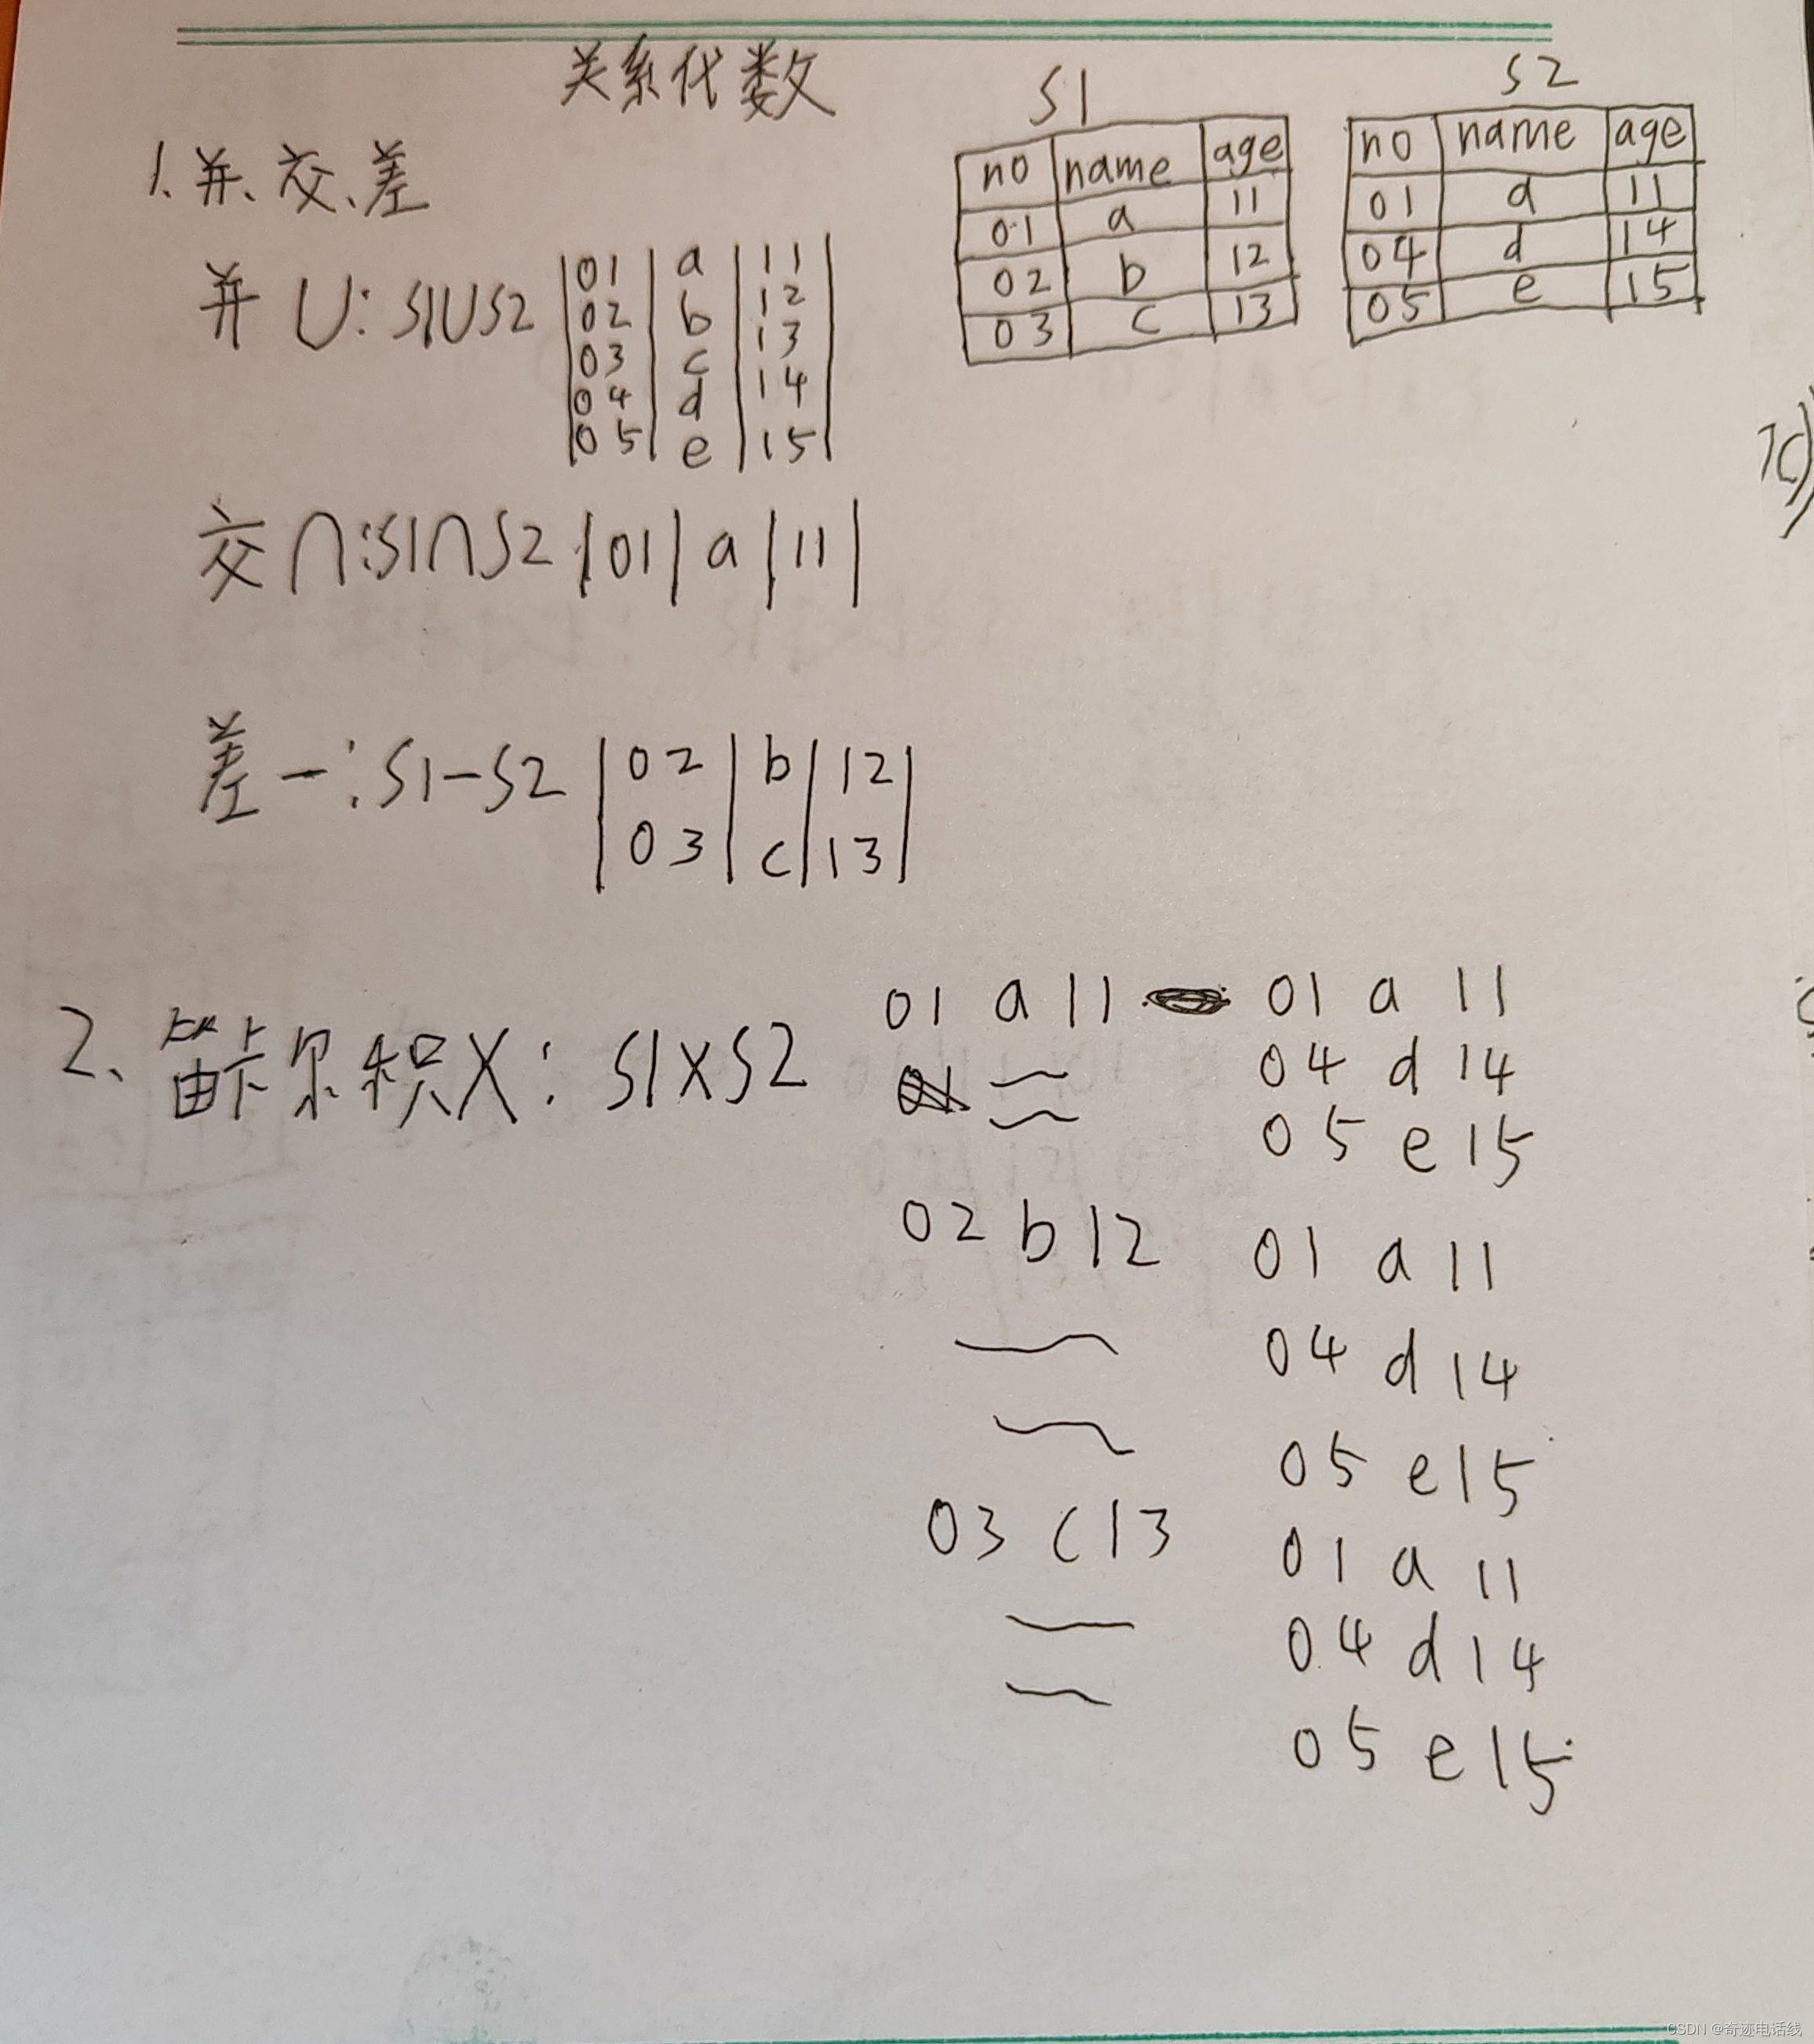 关系代数
S1
no name age
01 a 11
02 b 12
03 c 13
S2
no name age
01 a 11
04 d 14
05 e 15
1、并、交、差
并 ∪: S1∪S2
01 a 11
02 b 12
03 c 13
04 d 14
05 e 15
交 ∩:S1∩S2 |01| a |11|
差 一: S1-S2
02 b 12
03 c 13
2、笛卡尔积X: S1XS2
01 a 11 01 a 11
04 d 14
05 e 15
02 b 12 01 a 11
04 d 14
05 e 15
03 c 13 01 a 11
04 d 14
05 e 15
CSDN @奇迹电话线